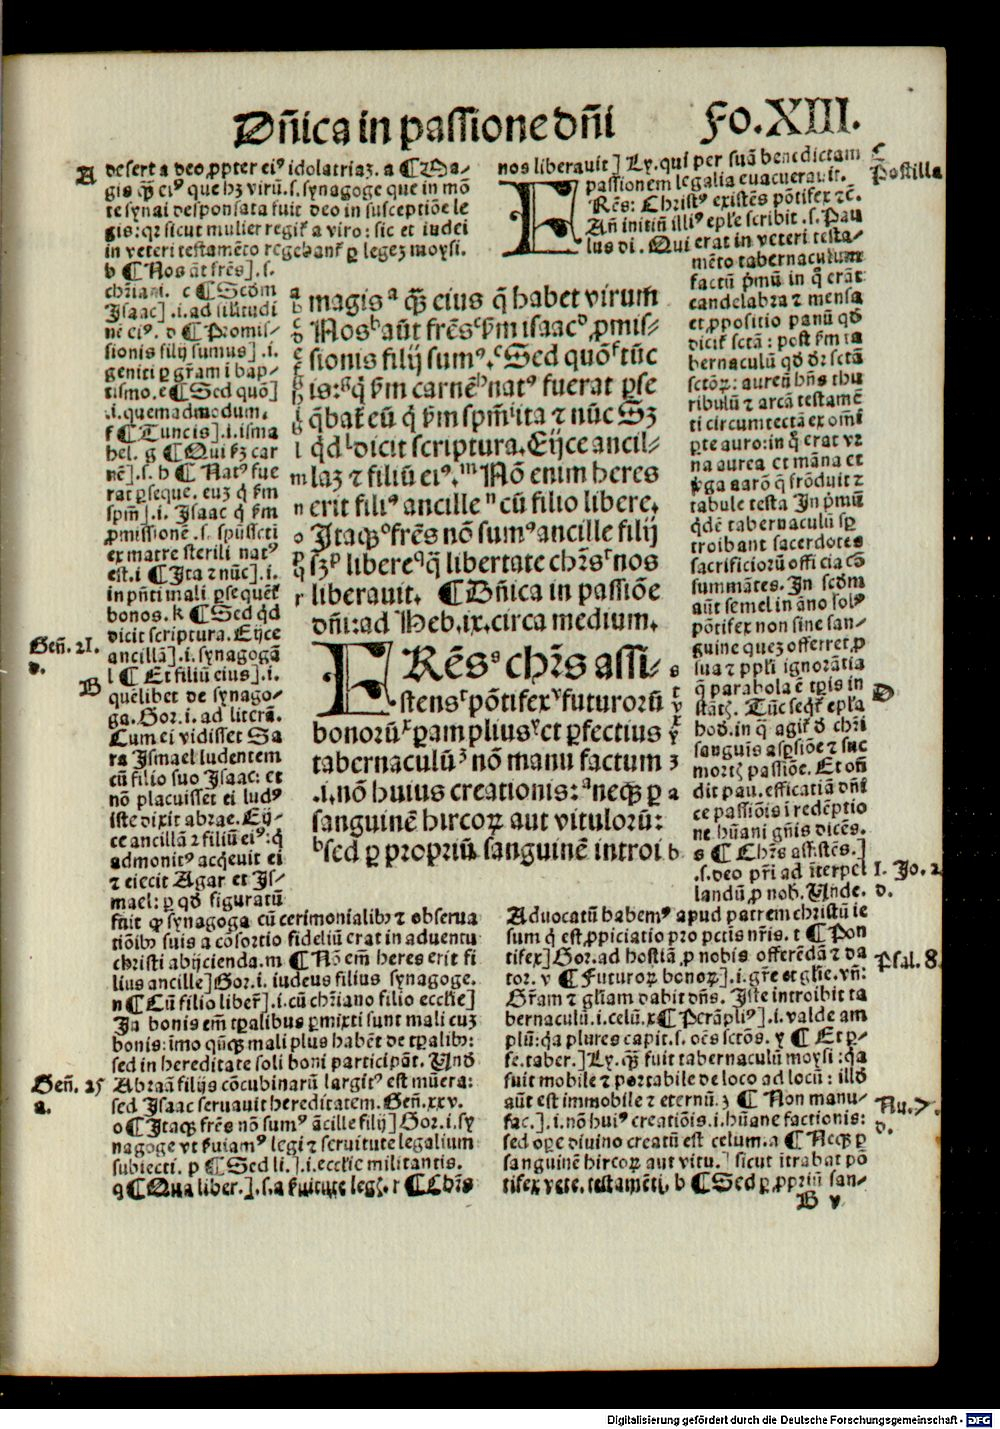 Dñica in passione dñi
Fo.XIII.
A
desert a deo ꝓpter eiꝰ idolatriaꝫ. a ¶ Ma-
gis qꝫ eiꝰ que hꝫ virū. s. synagoge que in mō
te synai desponsata fuit deo in susceptiōe le
gis: qꝛ sicut mulier regit̄ a viro: sic et iudei
in veteri testamēto regebant̄ ꝑ legeꝫ moysi.
b ¶ Nos āt frēs]. s.
chr̄iani. c ¶ Scd̄m
Isaac] .i. ad silitudi
nē eiꝰ. d ¶ Promis-
sionis filij sumus] .i.
geniti ꝑ gr̄am i bap-
tismo. e ¶ Sed quō]
.i. quemadmodum.
f ¶ Tuncis] .i. isma
hel. g ¶ Qui ẜꝫ car
nē] .s. h ¶ Natꝰ fue
rat ꝑseque. euꝫ q̇ ẜm
spm̄] .i. Isaac q̇ ẜm
ꝓmissionē .s. spūsscti
ex matre sterili natꝰ
est. i ¶ Ita ⁊ nūc] .i.
in pn̄ti mali ꝑsequēt̄
bonos. k ¶ Sed qd̄
dicit scriptura. Eijce
ancillā] .i. synagogā
l ¶ Et filiū eius] .i.
quēlibet de synago-
ga. Gor. i. ad literā.
Cum ei vidisset Sa
ra Ismael ludentem
cū filio suo Isaac: et
nō placuisset ei ludꝰ
iste dixit abrae. Eij-
ce ancillā ⁊ filiū eiꝰ: q̇
admonitꝰ acq̇euit ei
⁊ eiecit Agar et Is-
mael: ꝑ qd̄ figuratū
fuit qꝫ synagoga cū cerimonialibꝫ ⁊ obserua
tiōibꝫ suis a cōsortio fideliū erat in aduentu
christi abijcienda. m ¶ Nō em̄ heres erit fi
lius ancille] Gor. i. iudeus filius synagoge.
n ¶ Cū filio liber̄] .i. cū chr̄iano filio eccl̄ie]
Ja bonis em̄ tꝑalibus ꝑmixti sunt mali cuꝫ
bonis: īmo qn̄qꝫ mali plus habēt de tꝑalibꝫ:
sed in hereditate soli boni participāt. Vnd̄
Abraā filijs cōcubinarū largitꝰ est mūera:
sed Isaac seruauit hereditatem. Geñ. xxv.
o ¶ Itaqꝫ frēs nō sumꝰ ācille filij] Gor. i. sy
nagoge vt ẜuiamꝰ legi ⁊ seruitute legalium
subiecti. p ¶ Sed li.] .i. eccl̄ie militantis.
q ¶ Qua liber.] .s. a ẜuitute legꝫ. r ¶ Chr̄s
Geñ. 21.
v.
B
Geñ. 25
a.
magis ᵃ qꝫ eius q̄ habet virum
Nos ᵇ aūt frēs ᶜ ẜm isaac ᵈ ꝓmis-
sionis filij sumꝰ. ᵉ Sed quō ᶠ tūc
is: ᵍ q̇ ẜm carnē ʰ natꝰ fuerat ꝑse
q̄bat̄ eū q̇ ẜm spm̄ ⁱ ita ⁊ nūc Sꝫ
qd̄ ˡ dicit scriptura. Eijce ancil-
laꝫ ⁊ filiū eiꝰ. ᵐ Nō enim heres
erit filiꝰ ancille ⁿ cū filio libere.
Itaqꝫ ᵒ frēs nō sumꝰ ancille filij
sꝫ ᵖ libere q̄ libertate chr̄s ʳ nos
liberauit. ¶ Dñica in passiōe
dñi: ad Heb. ix. circa medium.
FRēs ˢ chr̄s assi-
stens ᵗ pōtifex ᵛ futurorū
bonorū ˣ ꝑamplius ʸ et ꝑfectius
tabernaculū ᶻ nō manu factum
.i. nō huius creationis: ᵃ neqꝫ ꝑ
sanguinē hircoꝝ aut vitulorū:
ᵇ sed ꝑ propriū sanguinē introi
nos liberauit] Ly. qui per suā benedictam
passionem legalia euacuerauit.
FRēs: Christꝰ existēs pōtifex ⁊c̄.
Añ initiū illiꝰ ep̄le scribit .s. Pau
lus di. Qui erat in veteri testa-
mēto tabernaculum
factū pͥmū in q̇ erāt
candelabra ⁊ mensa
et ꝓpositio panū qd̄
dicit̄ sctā: post ẜm ta
bernaculū qd̄ dꝛ sctā
sctōꝝ: aureū hn̄s thu
ribulū ⁊ arcā testamē
ti circumtectā ex om̄i
ꝑte auro: in q̄ erat vr
na aurea et māna et
ꝟga aarō q̄ frōduit ⁊
tabule testa In pͥmū
qͥdē tabernaculū sꝑ
troibant sacerdotes
sacrificiorū officia cō
summātes. In scd̄m
aūt semel in āno solꝰ
pōtifex non sine san-
guine queꝫ offerret ꝓ
sua ⁊ ppl̄i ignorātia
q̄ parabola ē tꝑis in
stātꝫ. Tūc seqͥt̄ ep̄la
hod̄. in q̄ agit̄ d̄ chr̄i
sanguis asꝑsiōe ⁊ sue
mortꝫ passiōe. Et oñ
dit pau. efficatiā dn̄i
ce passiōis i redēptio
ne hūani gn̄is dicēs.
s ¶ Chr̄s assistēs.]
.s. deo pr̄i ad īterpel
landū ꝓ nob. Vnde.
Aduocatū habemꝰ apud patrem christū ie
sum q̇ est ꝓpiciatio pro pctīs nr̄is. t ¶ Pon
tifex] Gor. ad hostiā ꝓ nobis offerēdā ⁊ da
tor. v ¶ Futuroꝝ bonoꝝ] .i. gr̄e et gl̄ie. vn̄:
Gr̄am ⁊ gl̄iam dabit dn̄s. Iste introibit ta
bernaculū .i. celū. x ¶ Ꝑāpliꝰ] .i. valde am
plū: qa plures capit .s. oēs sctōs. y ¶ Et ꝑ-
fe. taber.] Ly. qꝫ fuit tabernaculū moysi: qa
fuit mobile ⁊ portabile de loco ad locū: illd̄
aūt est immobile ⁊ eternū. ꝫ ¶ Non manu-
fac.] .i. nō huiꝰ creatiōis .i. hūane factionis:
sed oꝑe diuino creatū est celum. a ¶ Neqꝫ ꝑ
sanguinē hircoꝝ aut vitu.] sicut ītrabat pō
tifex vete. testamēti. b ¶ Sed ꝑ ꝓpriū san-
C
Postilla
D
1. Jo. 2
d.
Psal. 8.
Nu. 7.
d.
B v
Digitalisierung gefördert durch die Deutsche Forschungsgemeinschaft - DFG